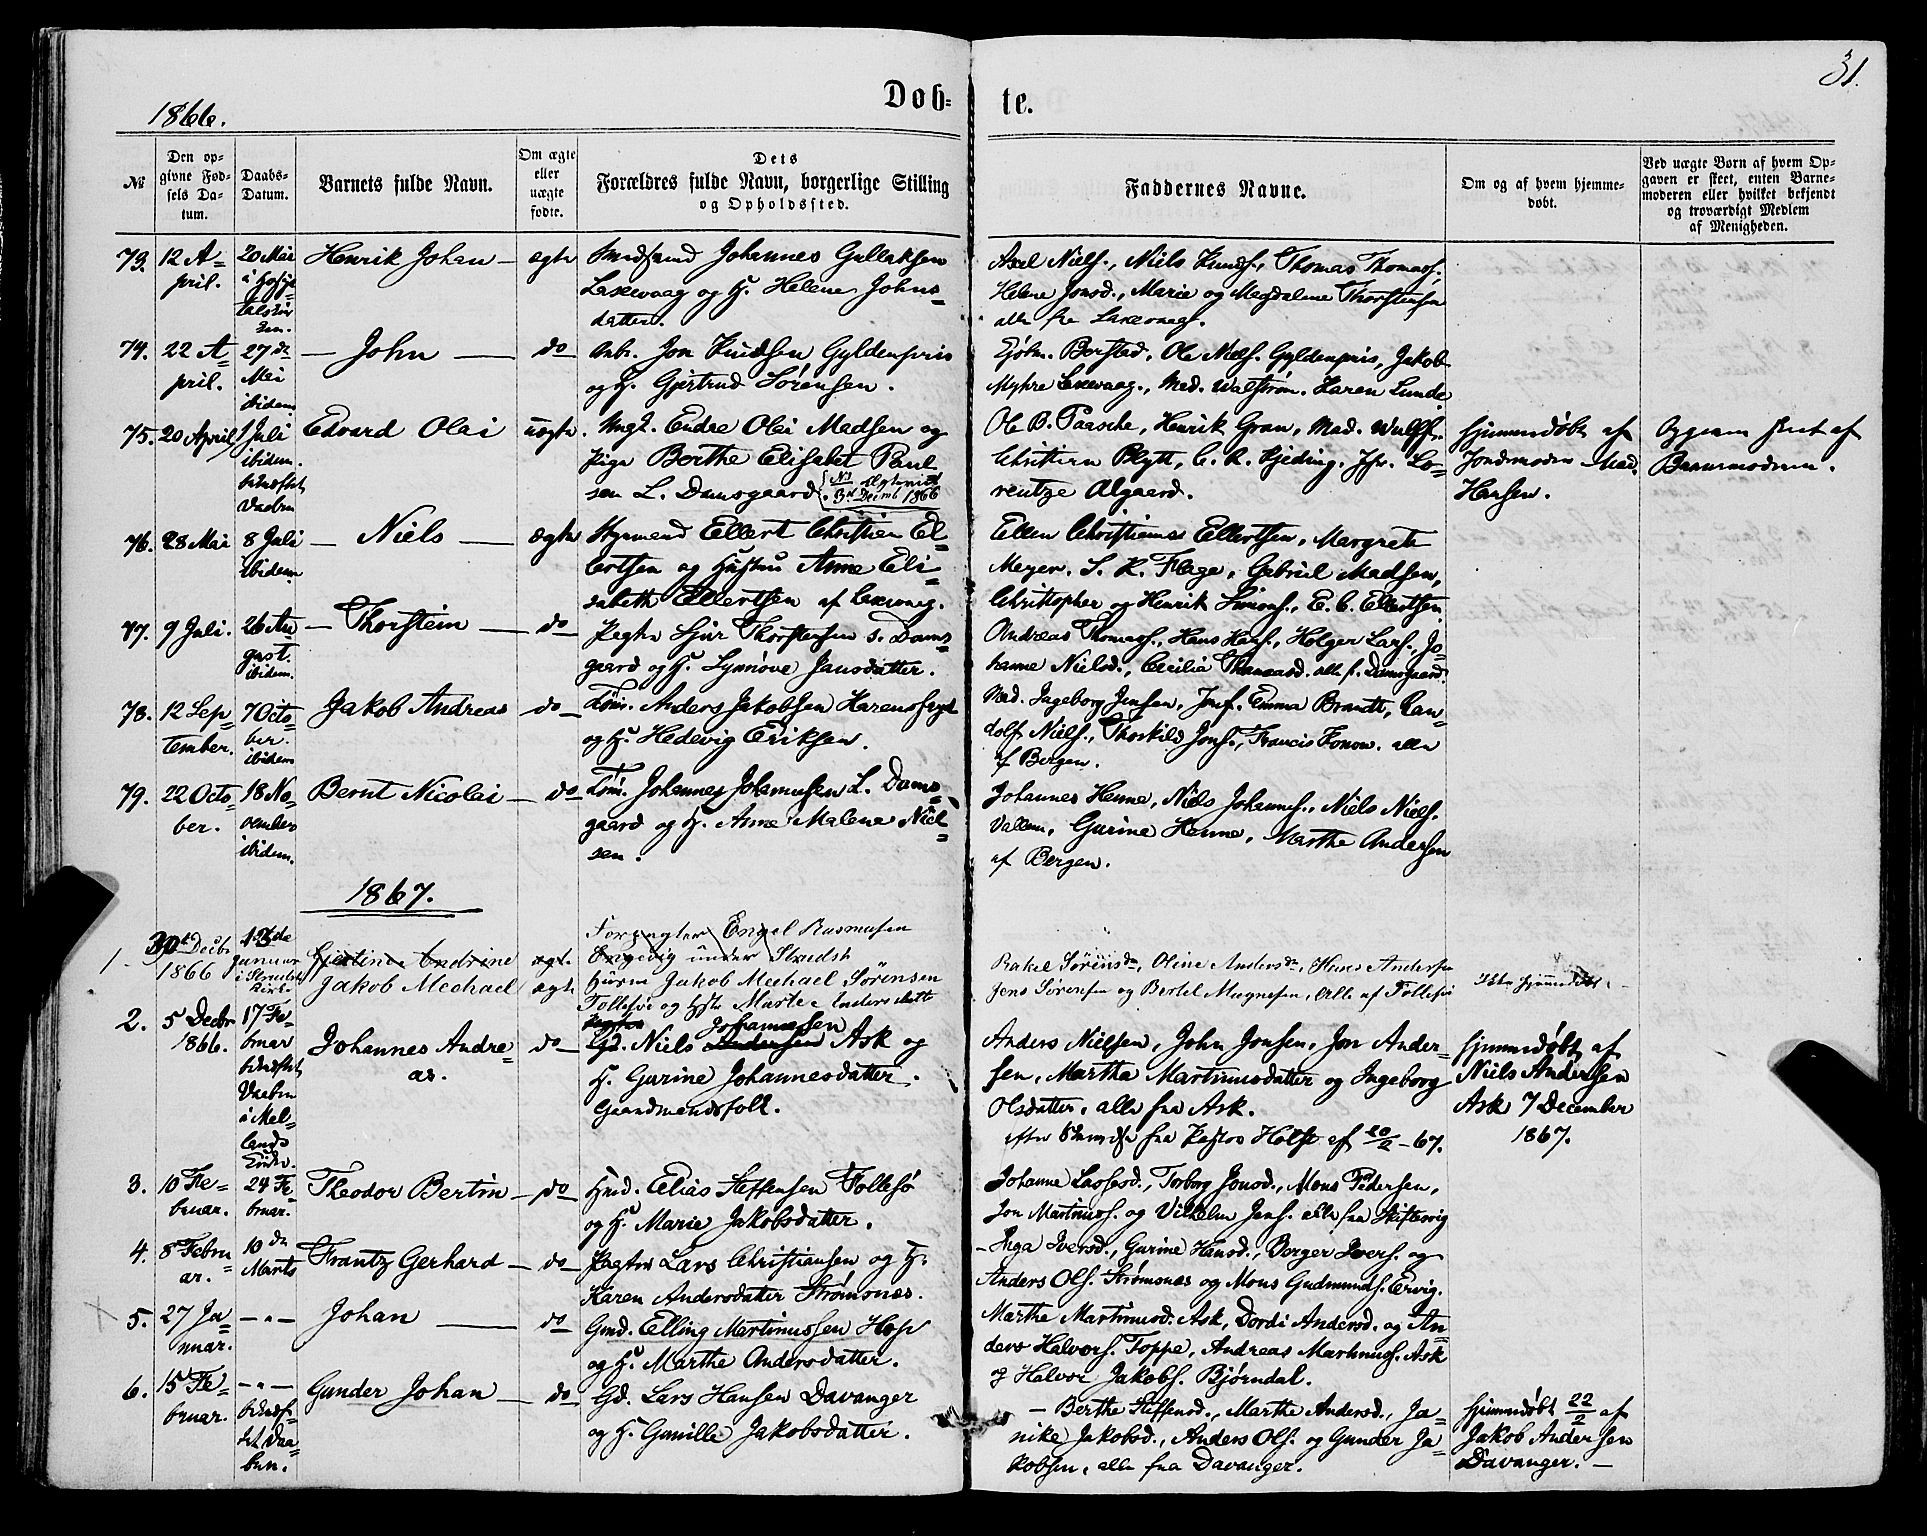 31.
1866.
Døb-
te.
№
Den op-
givne Fød-
sels Da-
tum.
Daabs-
Datum.
Barnets fulde Navn.
Om ægte
eller
uægte
fødte.
Dets
Forældres fulde Navn, borgerlige Stilling
og Opholdssted.
Faddernes Navne.
Om og af hvem hjemme-
døbt.
Ved uægte Børn af hvem Op-
gaven er skeet, enten Barne-
moderen eller hvilket bekjendt
og troværdigt Medlem
af Menigheden.
73.
12 A-
pril.
20 Mai
i
Henrik Johan
ægte
Johannes Gullaksen
Laxevaag og H. Helene Johns-
datter.
Axel Niels., Niels Knuds., Thomas Thomass.
Helene Jonsd., Marie og Magdalene Thorstensen
alle fra Laxevaag.
74.
22 A-
pril.
27 de
Mai
ibidem
John
do
Arb. Jon Knudsen Gyldenpris
og H. Gjertrud Sørensen.
Borstad, Ole Niels. Gyldenpris, Jakob
Myhre Laxevaag., Mad. Walstrøm. Karen Lunde
75.
20 April
1 Juli
ibidem.
bekræftet
Daaben
Edvard Olai
uægte.
Ungk. Endre Olai Madsen og
Pige Berthe Elisabet Paul-
sen L. Damsgaard
1866
Ole B. Paasche, Henrik Gran, Mad. Wulff.
Christian Blytt, C. R. Kjeding. Jfr. Lo-
rentze Algaard.
hjemmedøbt af
Jordemoder Mad.
Hansen.
Opgaven skeet af
Barnemoderen.
76.
28 Mai
8 Juli
ibidem
Niels
ægte
Styrmand Ellert Christian El-
lertsen og Hustru Anne Eli-
sabeth Ellertsen af Laxevaag.
Ellen Christiansd. Ellertsen, Margrete
Meyer. S. K. Flage, Gabriel Madsen,
Christopher og Henrik Simons., E. C. Ellertsen.
77.
9 Juli.
26 Au-
gust.
ibidem.
Thorstein
do
Pagter Sjur Thorstensen s. Dams-
gaard og H. Synnøve Jansdatter.
Andreas Thomass., Hans Hans., Holger Lars., Jo-
hanne Nielsd., Cecilia Thomasd. alle f. Damsgaard.
78.
12 Sep-
tember.
7 Octo-
ber.
ibidem
Jakob Andreas
do
Tøm. Anders Jakobsen
og H. Hedevig Eriksen.
Mad. Ingeborg Jensen, Jomf. Emma Brandt, Ran-
dolf Niels., Thorkild Jons., Francis Konow. alle
af Bergen.
79.
22 Octo-
ber.
18 No-
vember
ibidem.
Bernt Nicolai
do
Tøm. Johannes Johannessen L. Dams-
gaard og H. Anne Malene Niel-
sen.
Johannes Henne, Niels Johanness., Niels Niels.
Vallem, Gurine Henne, Marthe Andersen
af Bergen.
1867.
1.
30te Decbr
1866
13de
Januar
i
Gjertine Andrine
Jakob Mechael
ægte
ægte
Forpagter Engel Rasmussen
under
Jakob Mechael Sørensen
Follesø og Marte Andersdatter
Rakel Sørensdr, Oline Andersdr, Hans Andersen
Jens Sørensen og Bertel Magnesen, Alle af Follesø
Ikke hjemmedøbt.
2.
5 Decbr
1866.
17 Fe-
bruar
bekræftet
Daaben
Johannes Andre-
as.
do
Gd. Niels Andersen Ask og
Johannessen
H. Gurine Johannesdatter.
Gaardmandsfolk.
Anders Nielsen, John Jonsen, Jon Ander-
sen, Martha Martinusdatter og Ingeborg
Olsdatter, alle fra Ask.
efter fra Pastor Holst af -67.
hjemmedøbt af
Niels Andersen
Ask 7 December
1867.
3.
10 Fe-
bruar.
24 Fe-
bruar.
Theodor Bertin
do
Elias Steffensen Follesø
og H. Marie Jakobsdatter.
Johanne Lassesd., Torborg Jonsd., Mons Pedersen,
Jon Martinus. og Vilhelm Jens. alle fra Skiftesvig
4.
8 Febru-
ar.
10 de
Marts
Frantz Gerhard
do
Pagter Lars Christiansen og H.
Karen Andersdatter Strømsnæs.
Inga Iversd., Gurine Hansd., Borger Ivers. og
Anders Ols. Strømsnæs og Mons Gudmunds. Ervig.
5.
27 Ja-
nuar.
- " -
Johan
do
Gmd. Elling Martinussen Hop
og H. Marthe Andersdatter.
Marthe Martinusd. Ask, Dordi Andersd. og An-
ders Halvors. Toppe, Andreas Martinus. Ask
og Halvor Jakobs. Bjørndal.
6.
15 Fe-
bruar.
- " -
bekræf-
tet Daa-
ben.
Gunder Johan
do
Gd. Lars Hansen Davanger
og H. Gunille Jakobsdatter.
Berthe Steffensd., Marthe Andersd., Ja-
nike Jakobsd., Anders Ols. og Gunder Ja-
kobsen, alle fra Davanger.
hjemmedøbt 22/2 af
Jakob Andersen
Davanger.